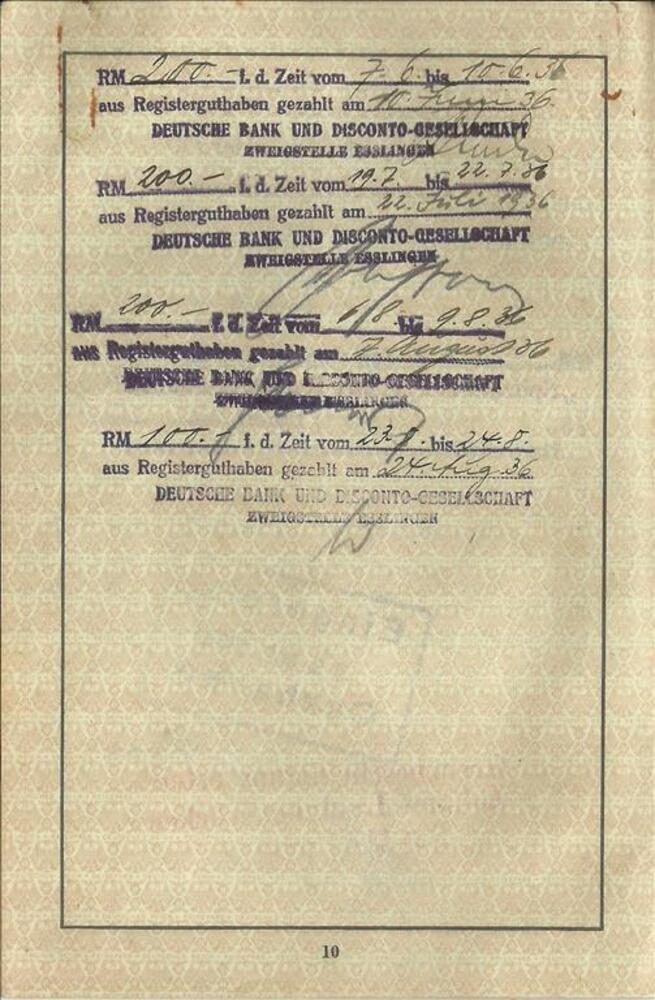 RM 200.- f. d. Zeit vom 7. 6. bis 10. 6. 36
aus Registerguthaben gezahlt am 10. Juni 36
DEUTSCHE BANK UND DISCONTO-GESELLSCHAFT
ZWEIGSTELLE ESSLINGEN
RM 200.- f. d. Zeit vom 19.7. bis 22.7.36
aus Registerguthaben gezahlt am 22. Juli 1936
DEUTSCHE BANK UND DISCONTO-GESELLSCHAFT
ZWEIGSTELLE ESSLINGEN
RM 200.- f. d. Zeit vom 6/8. bis 9.8.36
aus Registerguthaben gezahlt am 7. August 36
DEUTSCHE BANK UND DISCONTO-GESELLSCHAFT
ZWEIGSTELLE ESSLINGEN
RM 100.- f. d. Zeit vom 23.8. bis 24.8.
aus Registerguthaben gezahlt am 24. Aug. 36
DEUTSCHE BANK UND DISCONTO-GESELLSCHAFT
ZWEIGSTELLE ESSLINGEN
10